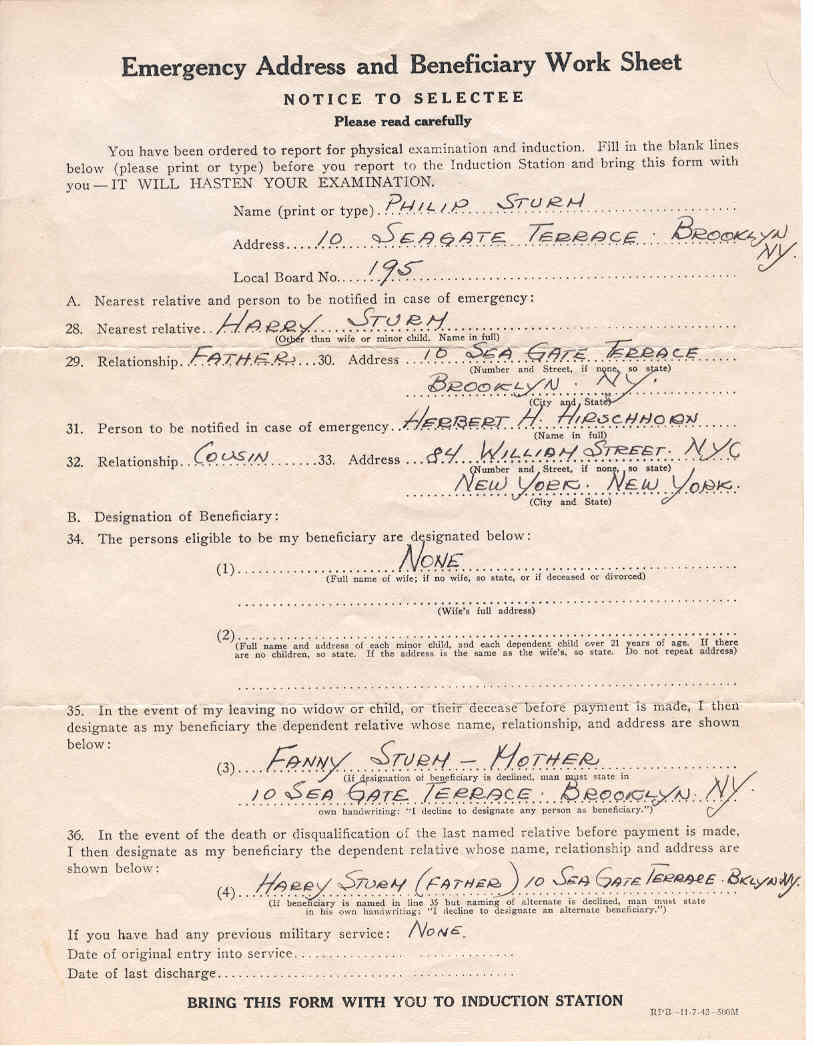 Emergency Address and Beneficiary Work Sheet
NOTICE TO SELECTEE
Please read carefully
You have been ordered to report for physical examination and induction. Fill in the blank lines
below (please print or type) before you report to the Induction Station and bring this form with
you — IT WILL HASTEN YOUR EXAMINATION.
Name (print or type) PHILIP STURM
Address.... 10 SEAGATE TERRACE. BROOKLYN
NY.
Local Board No.... 195
A. Nearest relative and person to be notified in case of emergency:
28. Nearest relative.. HARRY STURM
(Other than wife or minor child. Name in full)
29. Relationship. FATHER...30. Address ... 10 SEA GATE TERRACE
(Number and Street, if none, so state)
BROOKLYN. NY.
(City and State)
31. Person to be notified in case of emergency.. HERBERT H. HIRSCHHORN
(Name in full)
32. Relationship.. COUSIN.......33. Address ... 84 WILLIAM STREET. NYC
(Number and Street, if none, so state)
NEW YORK. NEW YORK.
(City and State)
B. Designation of Beneficiary:
34. The persons eligible to be my beneficiary are designated below:
(1) NONE
(Full name of wife; if no wife, so state, or if deceased or divorced)
(Wife's full address)
(2)
(Full name and address of each minor child, and each dependent child over 21 years of age. If there
are no children, so state. If the address is the same as the wife's, so state. Do not repeat address)
35. In the event of my leaving no widow or child, or their decease before payment is made, I then
designate as my beneficiary the dependent relative whose name, relationship, and address are shown
below:
(3) FANNY STURM — MOTHER
(If designation of beneficiary is declined, man must state in
10 SEA GATE TERRACE. BROOKLYN. NY.
own handwriting: "I decline to designate any person as beneficiary.")
36. In the event of the death or disqualification of the last named relative before payment is made,
I then designate as my beneficiary the dependent relative whose name, relationship and address are
shown below:
(4) HARRY STURM (FATHER) 10 SEA GATE TERRACE. BKLYN NY.
(If beneficiary is named in line 35 but naming of alternate is declined, man must state
in his own handwriting: "I decline to designate an alternate beneficiary.")
If you have had any previous military service: NONE.
Date of original entry into service
Date of last discharge
BRING THIS FORM WITH YOU TO INDUCTION STATION
RPB—11-7-42—500M